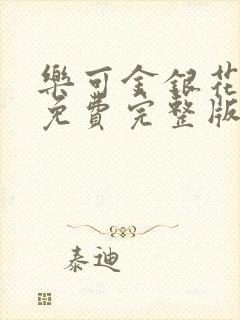 樂可金銀花
免費完整版
泰迪